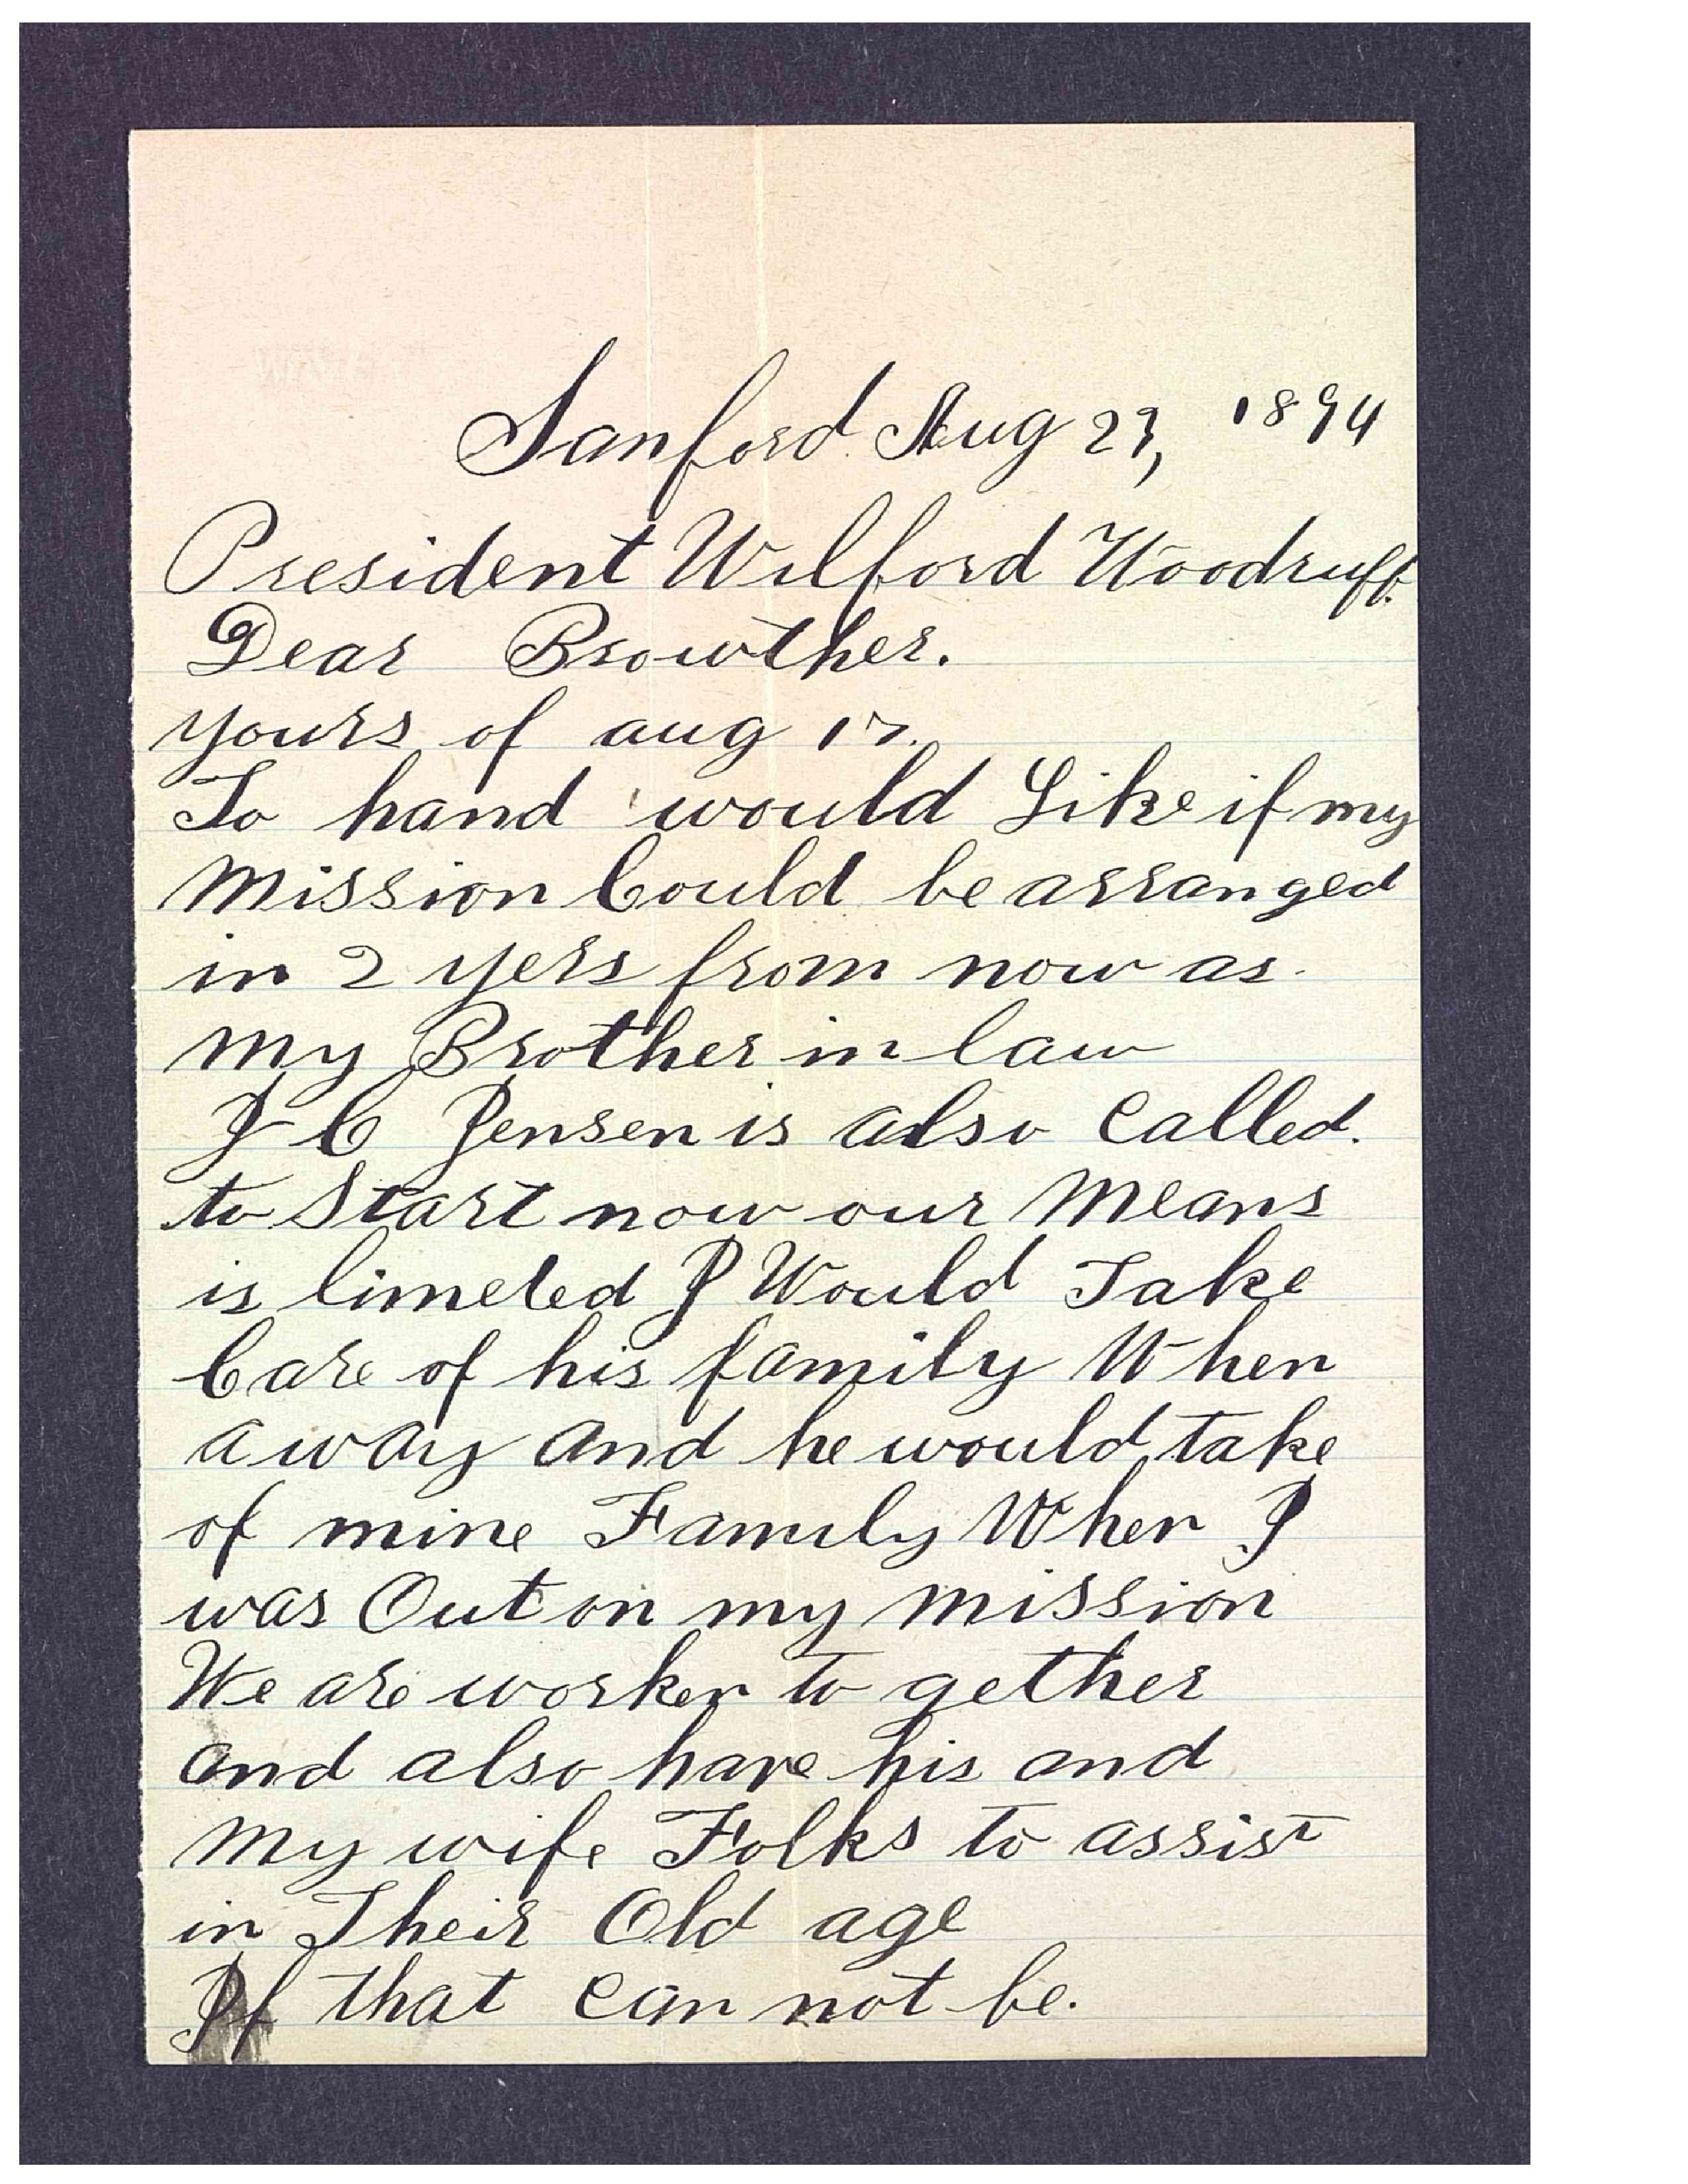 Sanford Aug 23, 1894
President Wilford Woodruff.
Dear Browther.
yours of aug 17.
To hand would Like if my
Mission Could be arranged
in 2 yers from now as
my Brother in law
J C Jensen is also Called.
to Start now our Means
is limeted I Would Take
Care of his family When
away and he would take
of mine Family When I
was Out on my Mission
We are worker to gether
and also have his and
my wife Folks to assist
in Their Old age
If that Can not be.